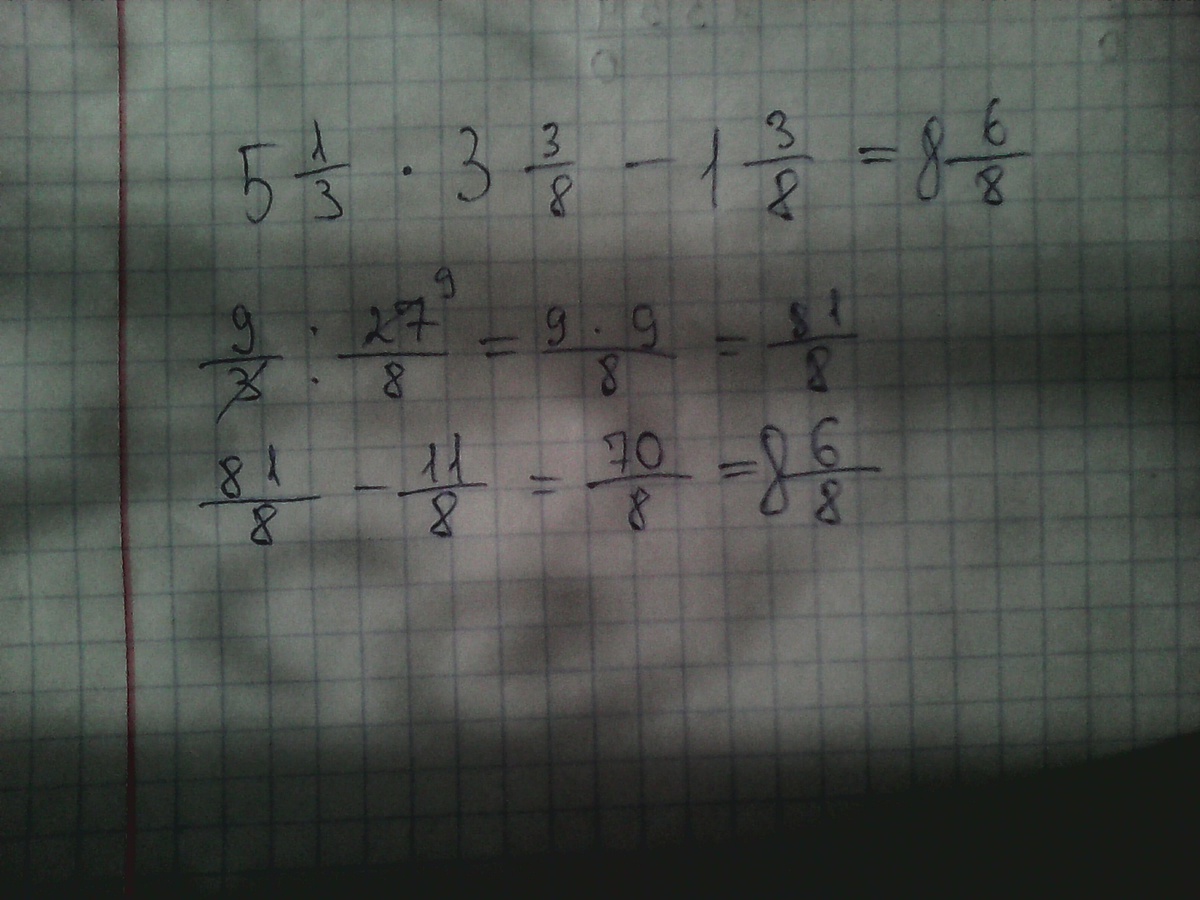 5 1/3 · 3 3/8 - 1 3/8 = 8 6/8
9/3 : 27/8 9 = 9 · 9/8 = 81/8
81/8 - 11/8 = 70/8 = 8 6/8